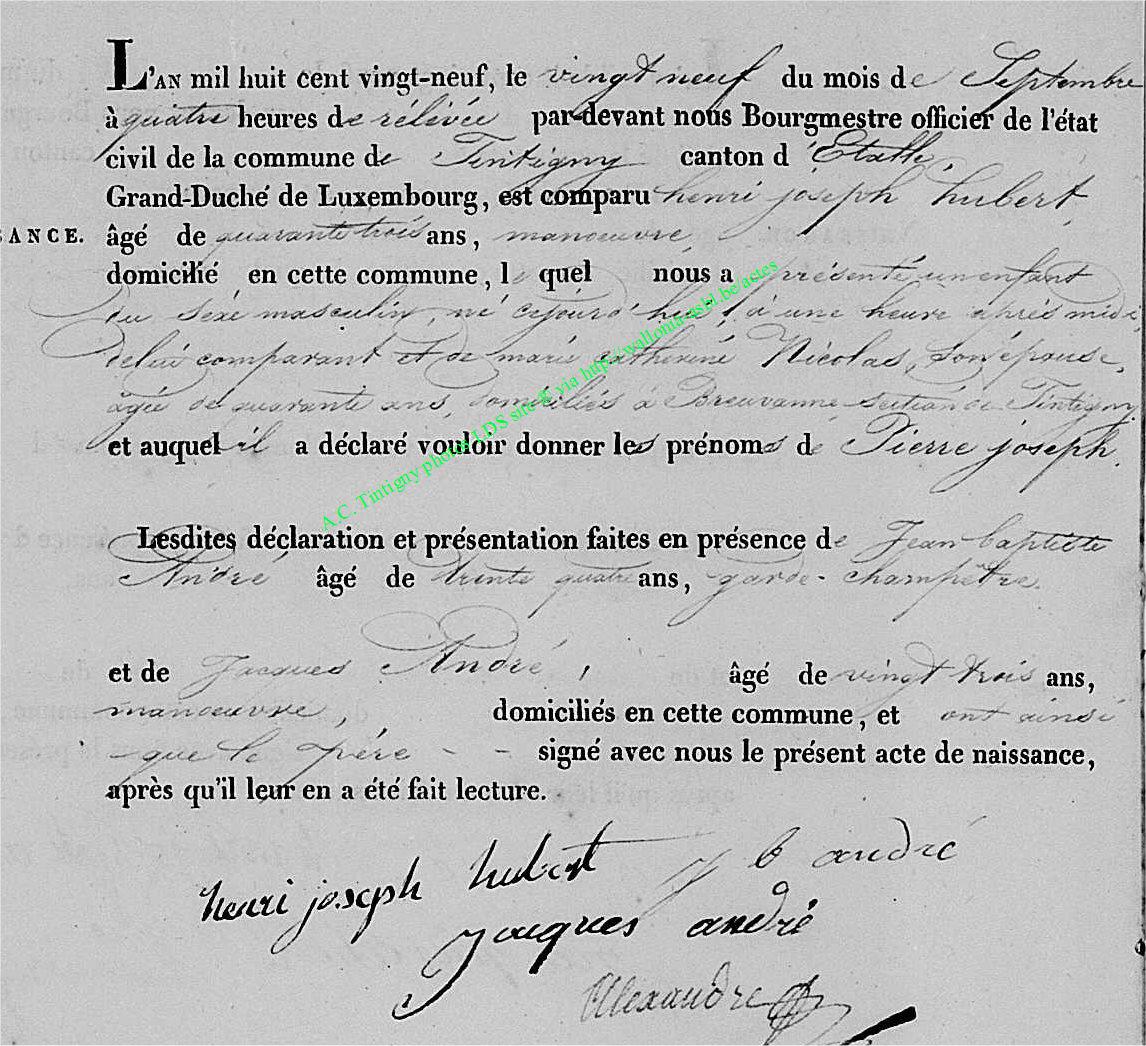 L'AN mil huit cent vingt-neuf, le vingt neuf du mois de Septembre
à quatre heures de rélévée par-devant nous Bourgmestre officier de l'état
civil de la commune de Tintigny canton d'Etalle,
Grand-Duché de Luxembourg, est comparu henri joseph hubert,
SANCE. âgé de quarante trois ans, manoeuvre,
domicilié en cette commune, le quel nous a présenté un enfant
du séxe masculin, né cejourd'hui, à une heure après midi
de lui comparant et de marie catherine Nicolas, son épouse,
agée de quarante ans, domiciliés à Breuvanne section de Tintigny
et auquel il a déclaré vouloir donner les prénoms de Pierre joseph.
A.C. Tintigny photos LDS site © via http://wallonia-asbl.be/actes
Lesdites déclaration et présentation faites en présence de Jean baptiste
André âgé de trente quatre ans, garde-champêtre.
et de Jacques André, âgé de vingt trois ans,
manoeuvre, domiciliés en cette commune, et ont ainsi
que le père - - signé avec nous le présent acte de naissance,
après qu'il leur en a été fait lecture.
henri joseph hubert j b andré
jacques andré
Alexandre